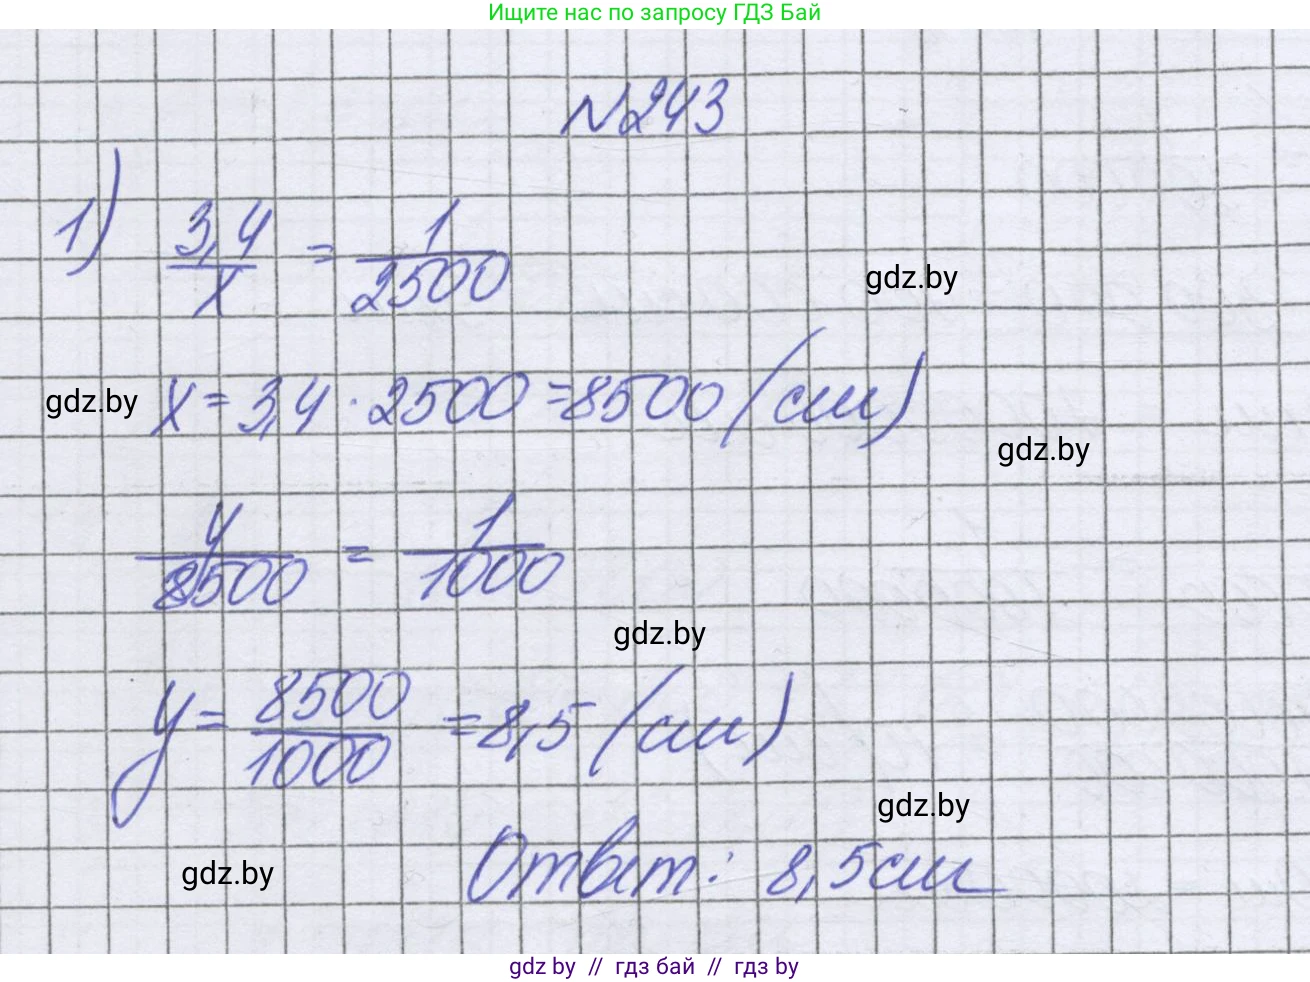 Ищите нас по запросу ГДЗ Бай
N243
1) 3,4/x = 1/2500
gdz.by
x = 3,4 · 2500 = 8500 (см)
gdz.by
gdz.by
y/8500 = 1/1000
gdz.by
y = 8500/1000 = 8,5 (см)
gdz.by
Ответ: 8,5 см
gdz.by
gdz by // гдз бай // гдз by